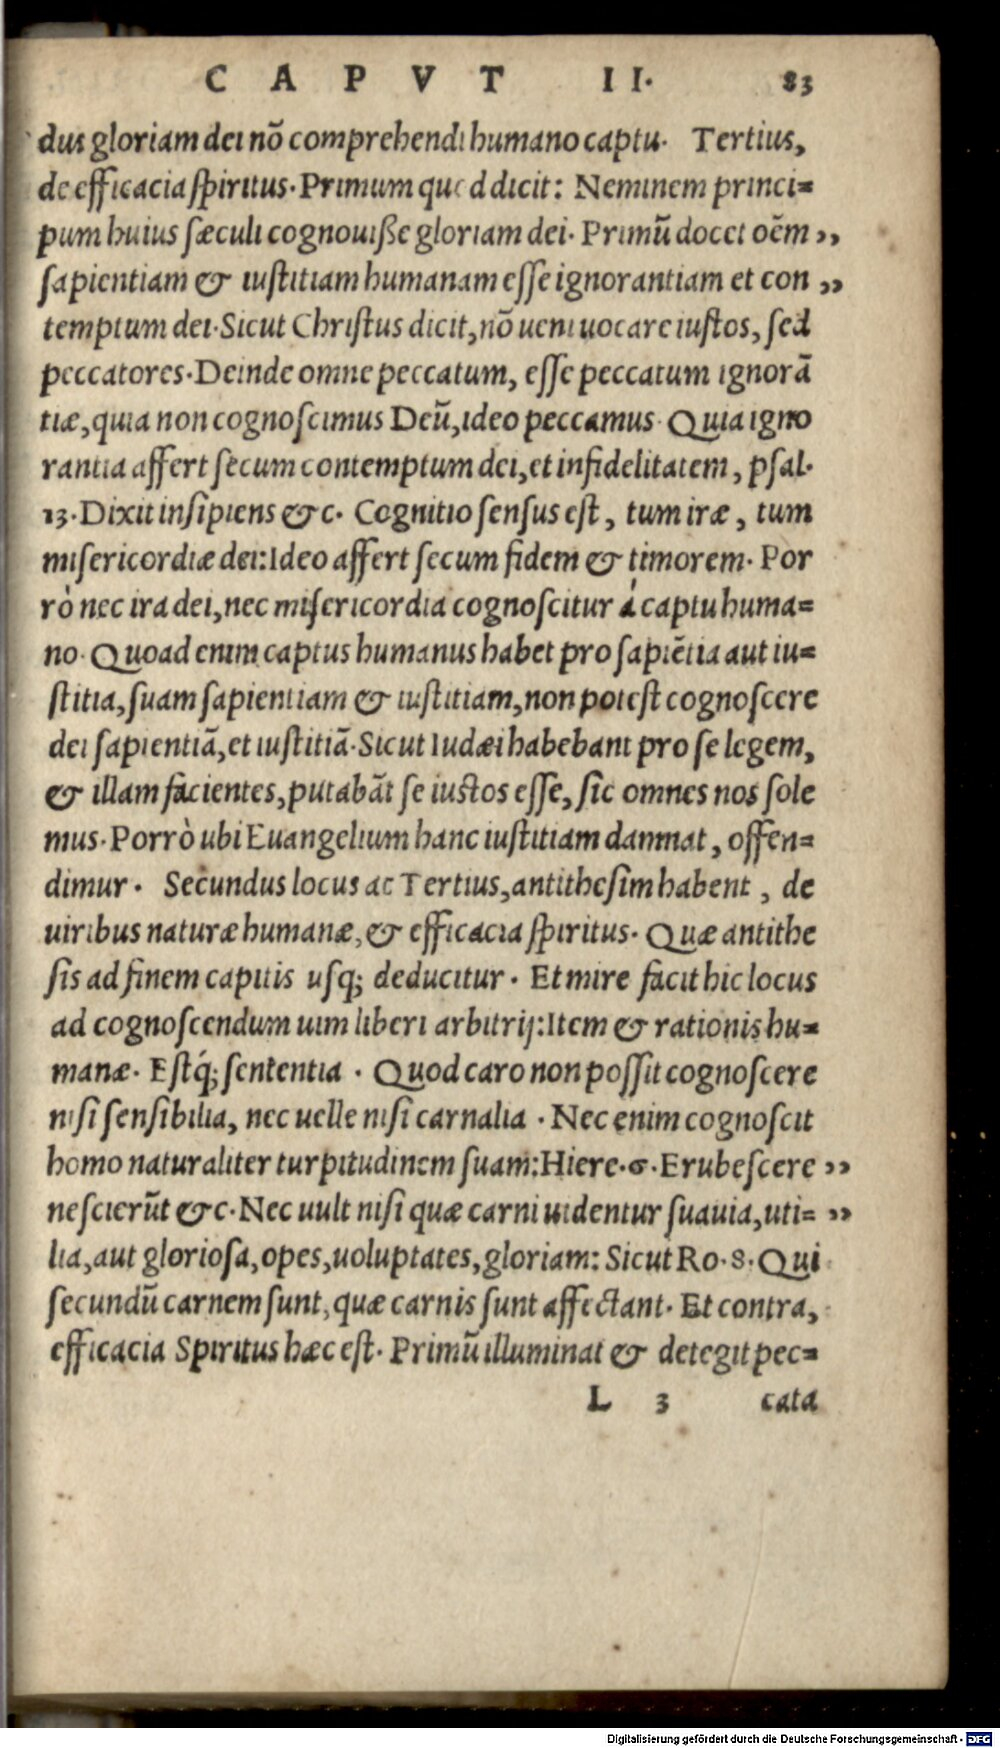 CAPVT II. 83
dus gloriam dei nõ comprehendi humano captu. Tertius,
de efficacia spiritus. Primum quod dicit: Neminem princi=
pum huius sæculi cognouiße gloriam dei. Primũ docet oẽm ,,
sapientiam & iustitiam humanam esse ignorantiam et con ,,
temptum dei. Sicut Christus dicit, nõ ueni uocare iustos, sed
peccatores. Deinde omne peccatum, esse peccatum ignorã
tiæ, quia non cognoscimus Deũ, ideo peccamus. Quia igno
rantia affert secum contemptum dei, et infidelitatem, psal.
13. Dixit insipiens &c. Cognitio sensus est, tum iræ, tum
misericordiæ dei: Ideo affert secum fidem & timorem. Por
rò nec ira dei, nec misericordia cognoscitur á captu huma=
no. Quoad enim captus humanus habet pro sapiẽtia aut iu=
stitia, suam sapientiam & iustitiam, non potest cognoscere
dei sapientiã, et iustitiã. Sicut Iudæi habebant pro se legem,
& illam facientes, putabãt se iustos esse, sic omnes nos sole
mus. Porrò ubi Euangelium hanc iustitiam damnat, offen=
dimur. Secundus locus ac Tertius, antithesim habent, de
uiribus naturæ humanæ, & efficacia spiritus. Quæ antithe
sis ad finem capitis usq; deducitur. Et mire facit hic locus
ad cognoscendum uim liberi arbitrij: Item & rationis hu=
manæ. Estq́; sententia. Quod caro non possit cognoscere
nisi sensibilia, nec uelle nisi carnalia. Nec enim cognoscit
homo naturaliter turpitudinem suam: Hiere. 6. Erubescere ,,
nescierũt &c. Nec uult nisi quæ carni uidentur suauia, uti= ,,
lia, aut gloriosa, opes, uoluptates, gloriam: Sicut Ro. 8. Qui
secundũ carnem sunt, quæ carnis sunt affectant. Et contra,
efficacia Spiritus hæc est. Primũ illuminat & detegit pec=
L 3 cata
Digitalisierung gefördert durch die Deutsche Forschungsgemeinschaft - DFG